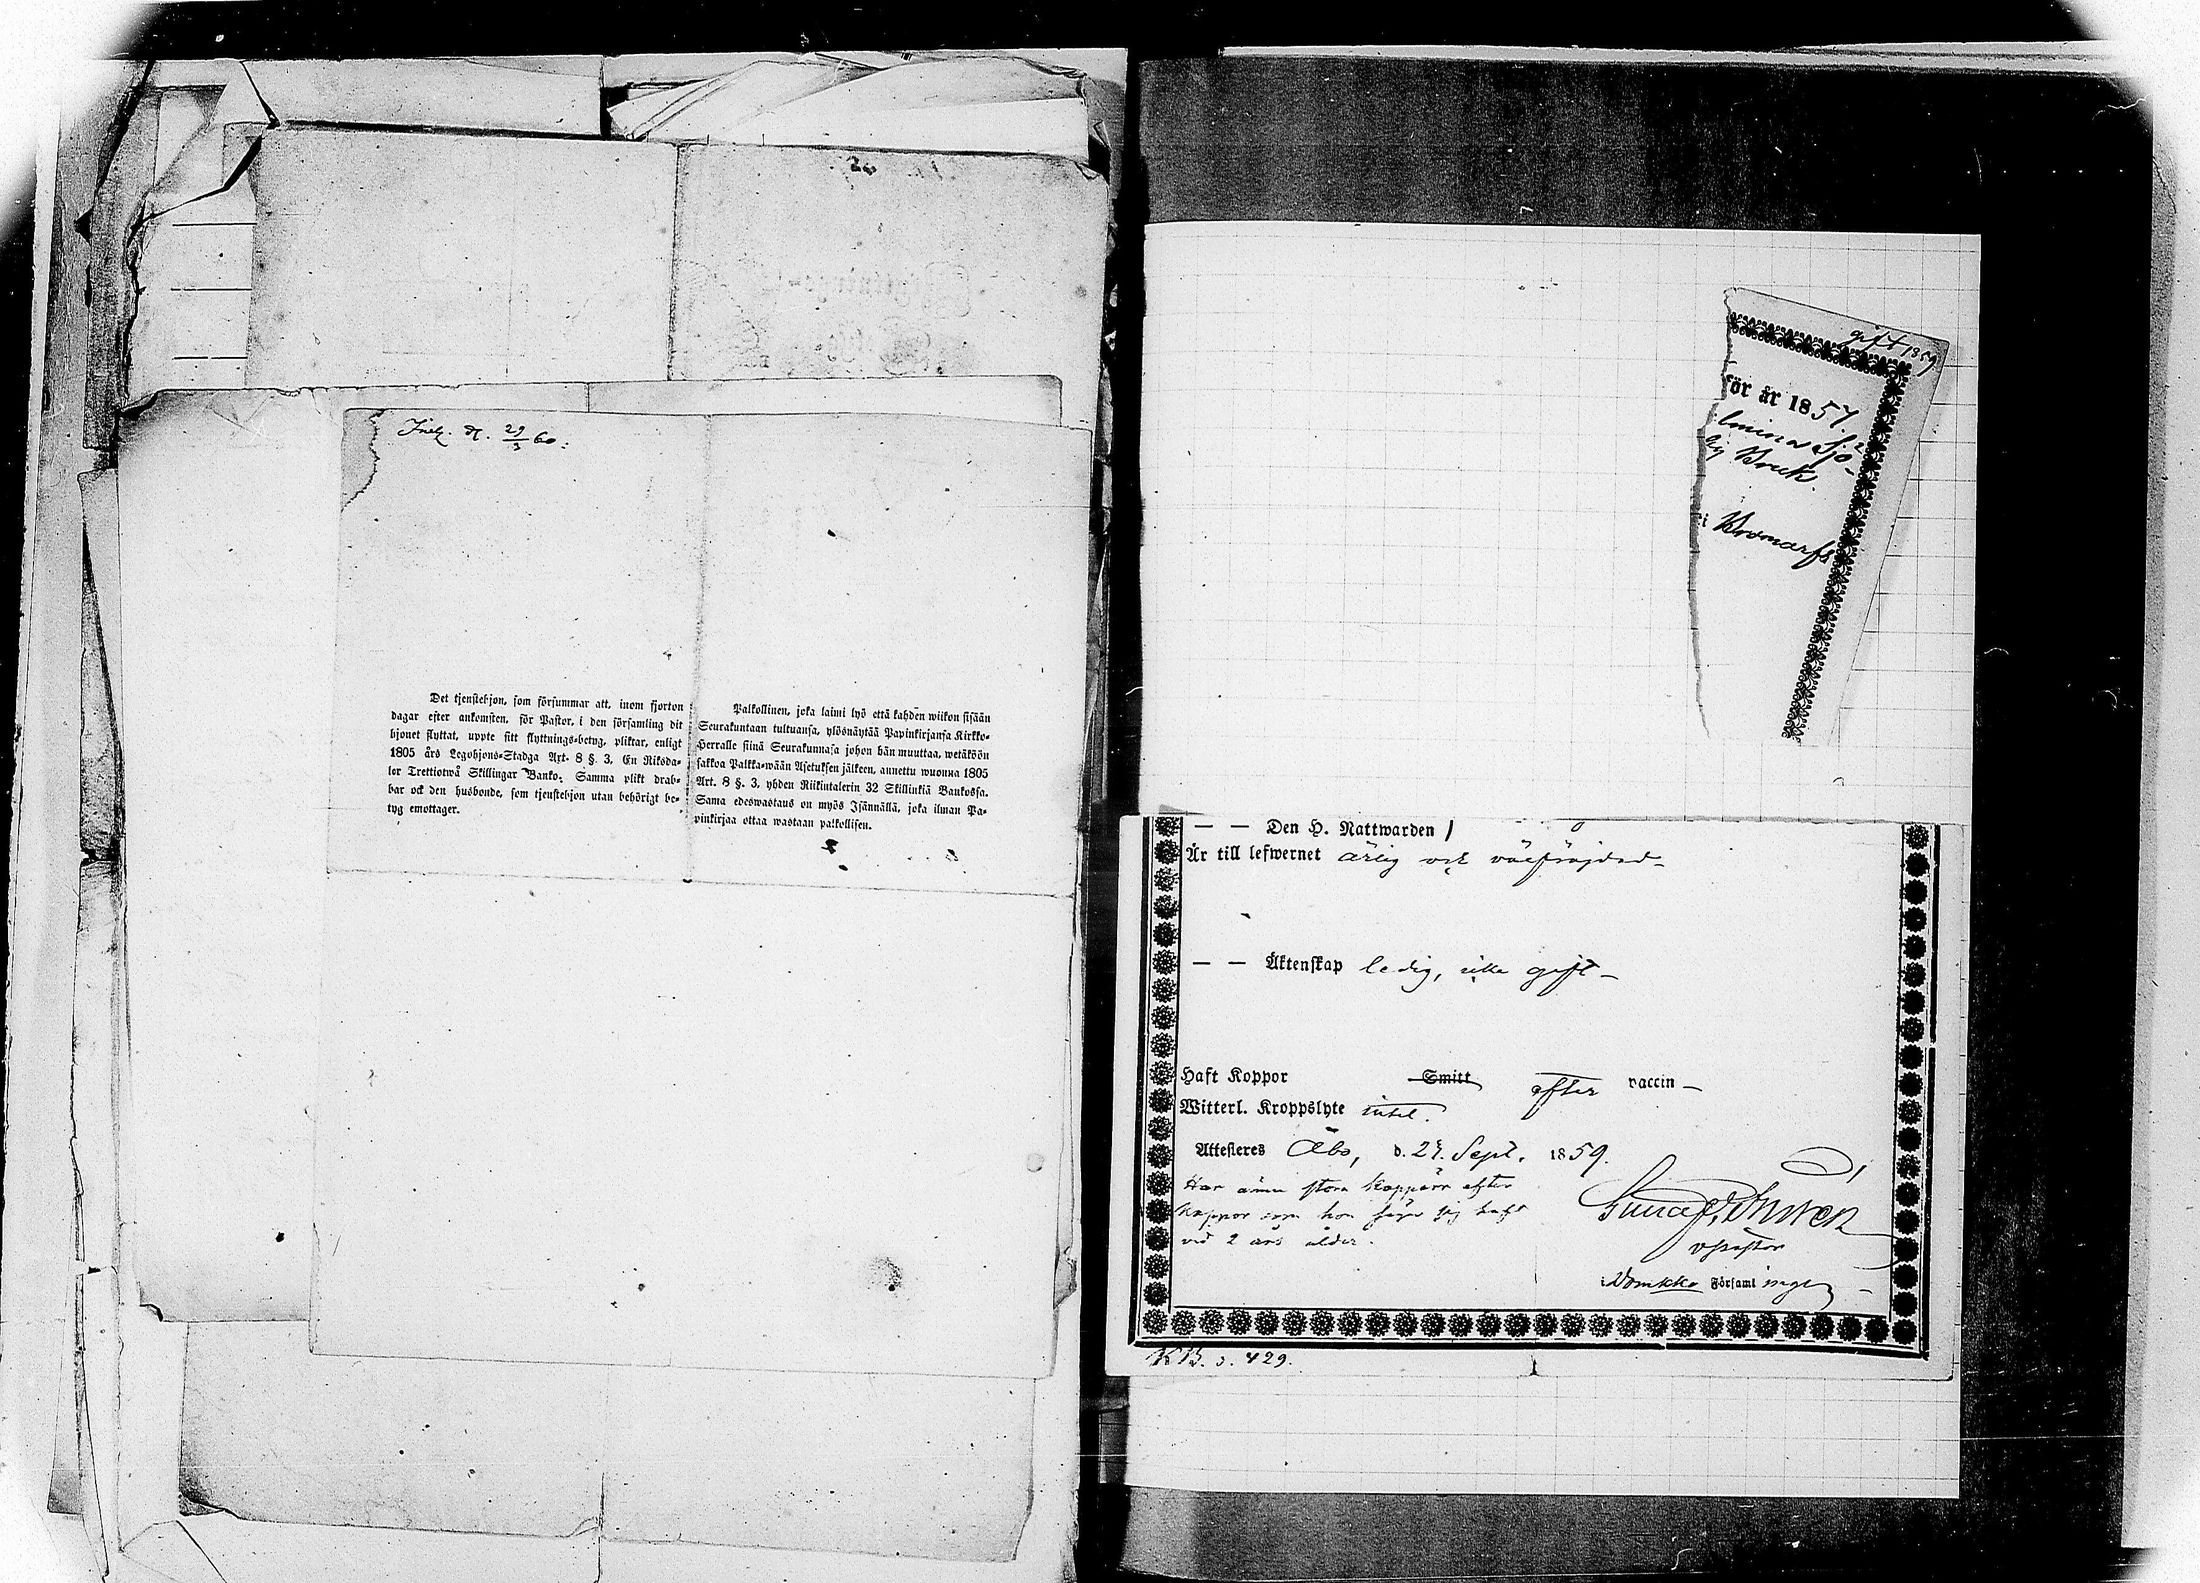 Det tjenstehjon, som försummar att, inom fjorton
dagar efter ankomsten, för Pastor, i den församling dit
hjonet flyttat, uppte sitt flyttnings-betyg, pliktar, enligt
1805 års Legohjons-Stadga Art. 8 §. 3, En Riksda-
ler Trettiotwå Skillingar Banko. Samma plikt drab-
bar ock den husbonde, som tjenstehjon utan behörigt be-
tyg emottager.
Palkollinen, joka laimi lyö että kahden wiikon sisään
Seurakuntaan tultuansa, ylösnäytää Papinkirjansa Kirkko-
Herralle siinä Seurakunnasa johon hän muuttaa, wetäköön
sakkoa Palkka-wään Asetuksen jälkeen, annettu wuonna 1805
Art. 8 §. 3, yhden Riikintalerin 32 Skillinkiä Bankossa.
Sama edeswastaus on myös Isännällä, joka ilman Pa-
pinkirjaa ottaa wastaan palkollisen.
gift 1859
för år 1857.
lmina Sjö-
Bruk.
i Bromarfs
— — Den H. Nattwarden
Är till lefwernet ärlig och välfräjdad
— — Äktenskap ledig, icke gift
Haft Koppor Smitt efter vaccin
Witterl. Kroppslyte intet.
Attesteres Åbo, d. 27. Sept. 1859.
Har ännu stora koppärr efter
koppor som hon säger sig haft
vid 2 års ålder.
v Pastor
Församlinge
KB. s. 429.